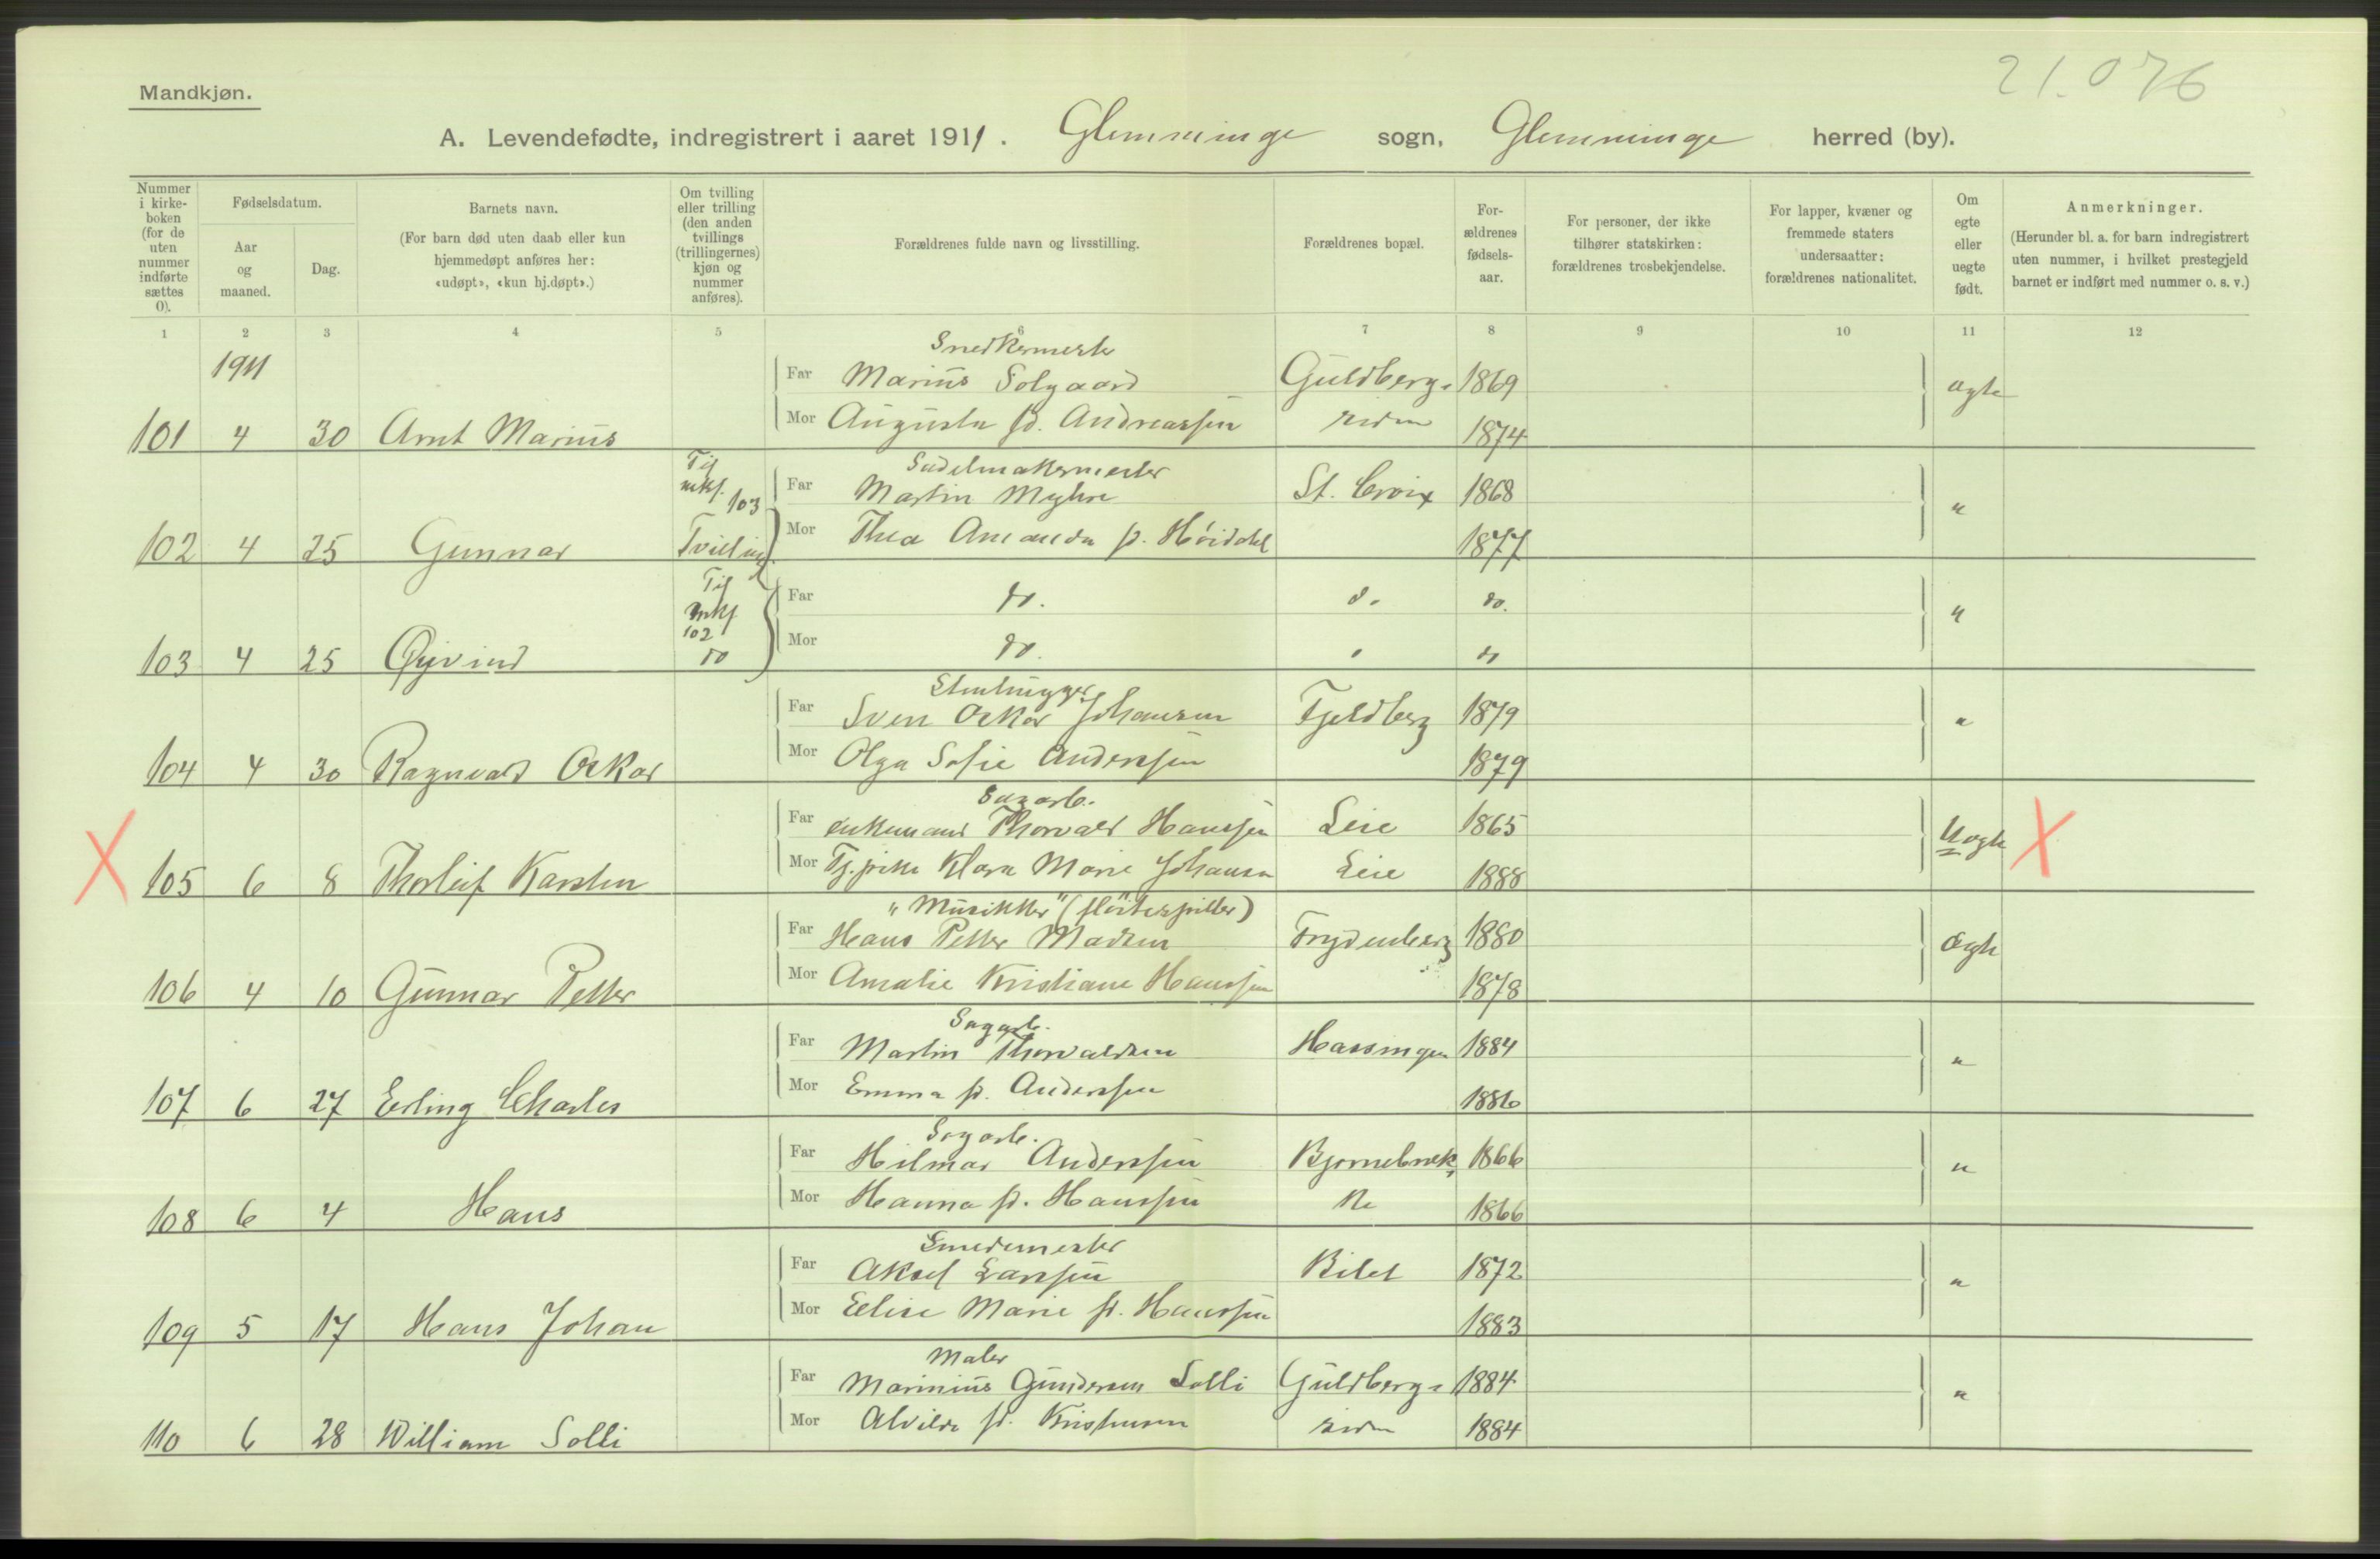 21.076
Mandkjøn.
A. Levendefødte, indregistrert i aaret 1911. Glemminge sogn, Glemminge herred (by).
Nummer i kirke-boken (for de uten nummer indførte sættes 0).
Fødselsdatum.
Aar og maaned.
Dag.
Barnets navn.
(For barn død uten daab eller kun hjemmedøpt anføres her: «udøpt», «kun hj.døpt».)
Om tvilling eller trilling (den anden tvillings (trillingernes) kjøn og nummer anføres).
Forældrenes fulde navn og livsstilling.
Forældrenes bopæl.
For-ældrenes fødsels-aar.
For personer, der ikke tilhører statskirken: forældrenes trosbekjendelse.
For lapper, kvæner og fremmede staters undersaatter: forældrenes nationalitet.
Om egte eller uegte født.
Anmerkninger.
(Herunder bl. a. for barn indregistrert uten nummer, i hvilket prestegjeld barnet er indført med nummer o. s. v.)
1 2 3 4 5 6 7 8 9 10 11 12
1911
Snedkermester
Far Marius Solgaard Guldbergs- 1869 ægte
101 4 30 Arnt Marius Mor Augusta f. Andreassen siden 1874
Til mkj. 103 Sadelmakermester
Far Martin Myhre St. Croix 1868 "
102 4 25 Gunnar Tvilling Mor Thea Amanda f. Høidahl 1877
Til mkj. 102
Far do. do. do. "
103 4 25 Øyvind do Mor do. " do
Stenhugger
Far Sven Oskar Johansen Fjeldberg 1879 "
104 4 30 Ragnvald Oskar Mor Olga Sofie Anderssen 1879
Sagarb.
Far enkemand Thorvald Hanssen Leie 1865 Uægte X
X 105 6 8 Thorleif Karsten Mor Tj.pike Klara Marie Johansen Leie 1888
"Musikker" (fløitespiller)
Far Hans Petter Madsen Frydenberg 1880 ægte
106 4 10 Gunnar Petter Mor Amalie Kristiane Hanssen 1878
Sagarb.
Far Martin Thorvaldsen Hassingen 1884 "
107 6 27 Erling Charles Mor Emma f. Anderssen 1886
Sagarb.
Far Hilmar Anderssen Bjørnebræk- 1866 "
108 6 4 Hans Mor Hanna f. Hanssen ke 1866
Smedemester
Far Aksel Larssen Bilet 1872 "
109 5 17 Hans Johan Mor Elise Marie f. Hanssen 1883
Maler
Far Marinius Gundersen Solli Guldbergs- 1884 "
110 6 28 William Solli Mor Alvilde f. Kristensen siden 1884